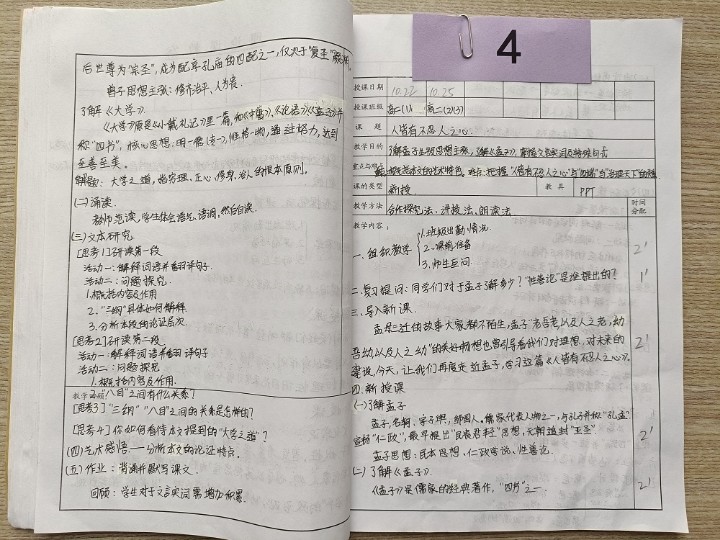 后世尊为"宗圣",成为配享孔庙的四配之一,仅次于"复圣"颜
曾子思想主张:修齐治平,人为贵.
了解《大学》.
《大学》原是《小戴礼记》里一篇,和《中庸》、《论语》、《孟子》并
称"四书",核心思想:明
至善至美.
大学之道,格穷理、正心、修身、治人的根本原则.
(二)诵读.
教师范读,学生体会语气、语调,然后自读.
(三)文本研究
[思考1]研读第一段
活动一:解释词语并翻译句子.
活动二:问题探究.
1.概括内容及作用
2."三纲"具体如何解释
3.分析本段的论证层次.
[思考2]研读第二段.
活动一:解释词语并翻译句子
活动二:问题探究
1.概括内容及作用.
"八目"之间有什么关系?
[思考3]"三纲""八目"之间的关系是怎样的?
[思考4]你如何看待本文提到的"大学之道"?
(四)艺术感悟——分析本文的论证特点.
(五)作业:背诵并默写课文.
回顾:学生对于文言实词需增加积累.
4
授课日期 10.22 10.25
授课班级 高二(1) 高二(2)(3)
课 题 人皆有不忍人之心.
教学目的 了解孟子主要思想主张,了解《孟子》,掌握文言实词及特殊句式
重点与难点
课的类型 新授 教 具 PPT
教学方法 合作探究法、讲授法、朗读法 时间分配
教学内容:
1.班级出勤情况
一、组织教学 2.课前准备 2'
3.师生互问
二.复习提问:同学们对于孟子了解多少?"性善论"是谁提出的? 1'
三.导入新课
孟母三迁的故事大家都不陌生,孟子"老吾老以及人之老,幼
吾幼以及人之幼"的美好畅想也曾引导着我们对理想,对未来的 2'
建设.今天,让我们再度走近孟子,学习这篇《人皆有不忍人之心》.
四.新授课
(一)了解孟子
孟子,名轲,字子舆,邹国人,儒家代表人物之一,与孔子并称"孔孟"
宣扬"仁政",最早提出"民贵君轻"思想,元朝追封"亚圣" 2'
孟子思想:民本思想、仁政学说、性善论.
(二)了解《孟子》.
《孟子》是儒家的经典著作,"四书"之一. 2'